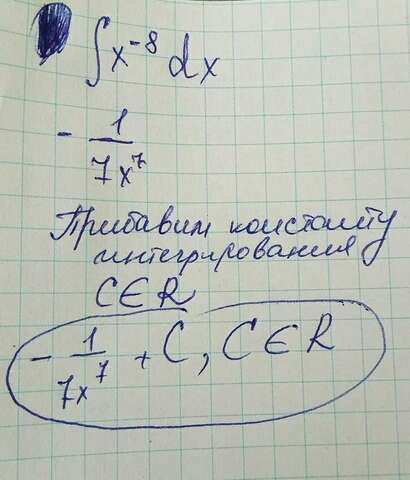 ∫x⁻⁸ dx
- 1/7x⁷
Прибавим константу
интегрирования
C∈R
- 1/7x⁷ + C, C∈R